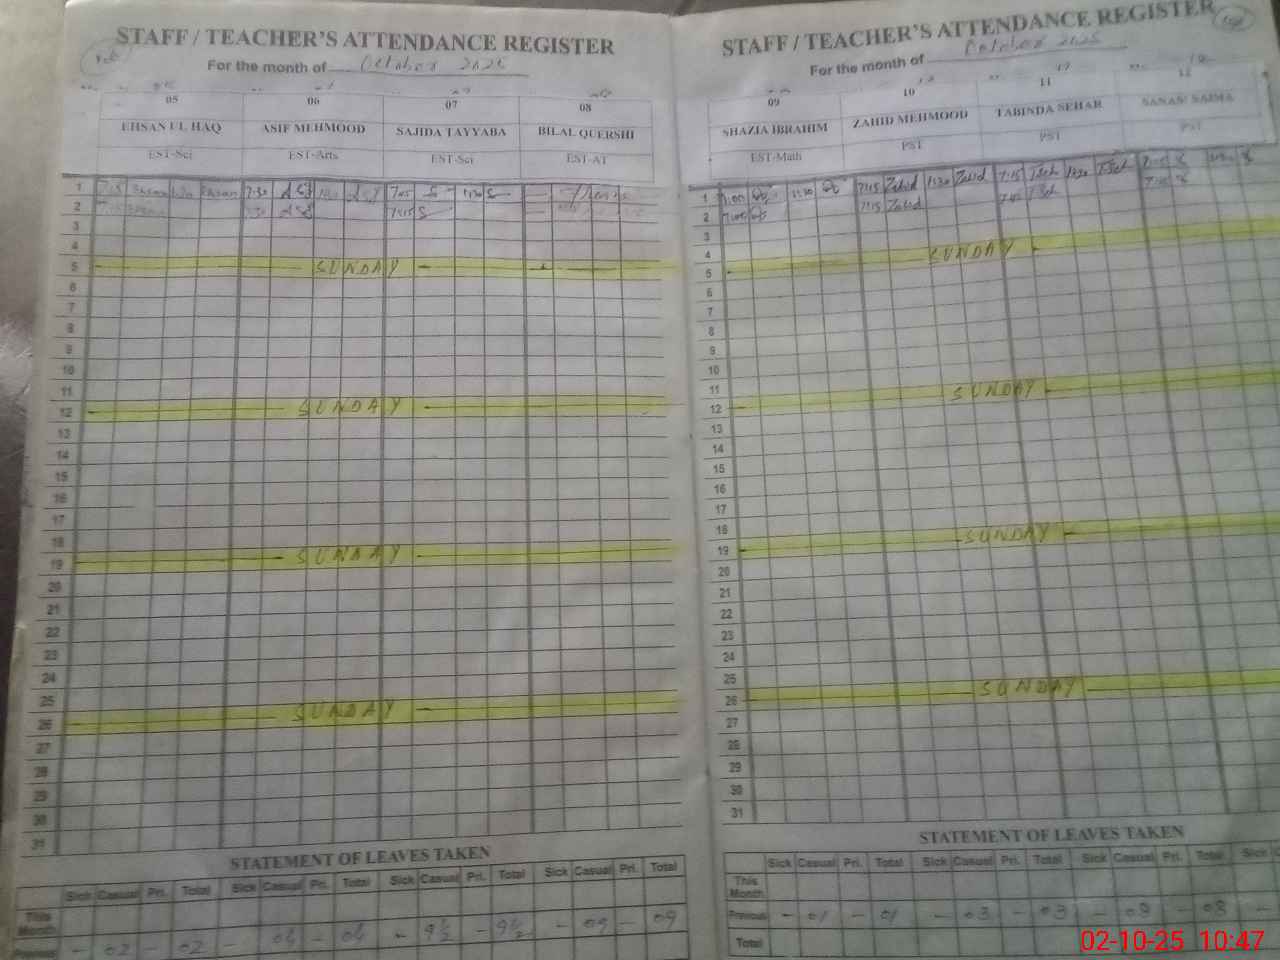 STAFF / TEACHER'S ATTENDANCE REGISTER
For the month of October 2025
05 06 07 08
EHSAN UL HAQ ASIF MEHMOOD SAJIDA TAYYABA BILAL QUERSHI
EST-Sci EST-Arts EST-Sci EST-AT
1 7:15 Ehsan Ehsan 7:30 7:05 S 1:30 S
2 7:15 S
3
4
5 SUNDAY
6
7
8
9
10
11
12 SUNDAY
13
14
15
16
17
18
19 SUNDAY
20
21
22
23
24
25
26 SUNDAY
27
28
29
30
31
STATEMENT OF LEAVES TAKEN
Sick Casual Pri. Total Sick Casual Pri. Total Sick Casual Pri. Total Sick Casual Pri. Total
This Month
Previous - 02 - 02 - 04 - 04 - 9½ - 9½ - 09 - 09
STAFF / TEACHER'S ATTENDANCE REGISTER
For the month of October 2025
09 10 11 12
SHAZIA IBRAHIM ZAHID MEHMOOD TABINDA SEHAR SANAM SAIMA
EST-Math PST PST PST
1 7:00 1:30 7:15 Zahid 1:30 Zahid 7:15 Tseh 1:30 Tseh 7:15
2 7:00 7:15 Zahid Tseh 7:15
3
4
5 SUNDAY
6
7
8
9
10
11
12 SUNDAY
13
14
15
16
17
18
19 SUNDAY
20
21
22
23
24
25
26 SUNDAY
27
28
29
30
31
STATEMENT OF LEAVES TAKEN
Sick Casual Pri. Total Sick Casual Pri. Total Sick Casual Pri. Total Sick
This Month
Previous - 01 - 01 - 03 - 03 - 08 - 08 -
Total
02-10-25 10:47